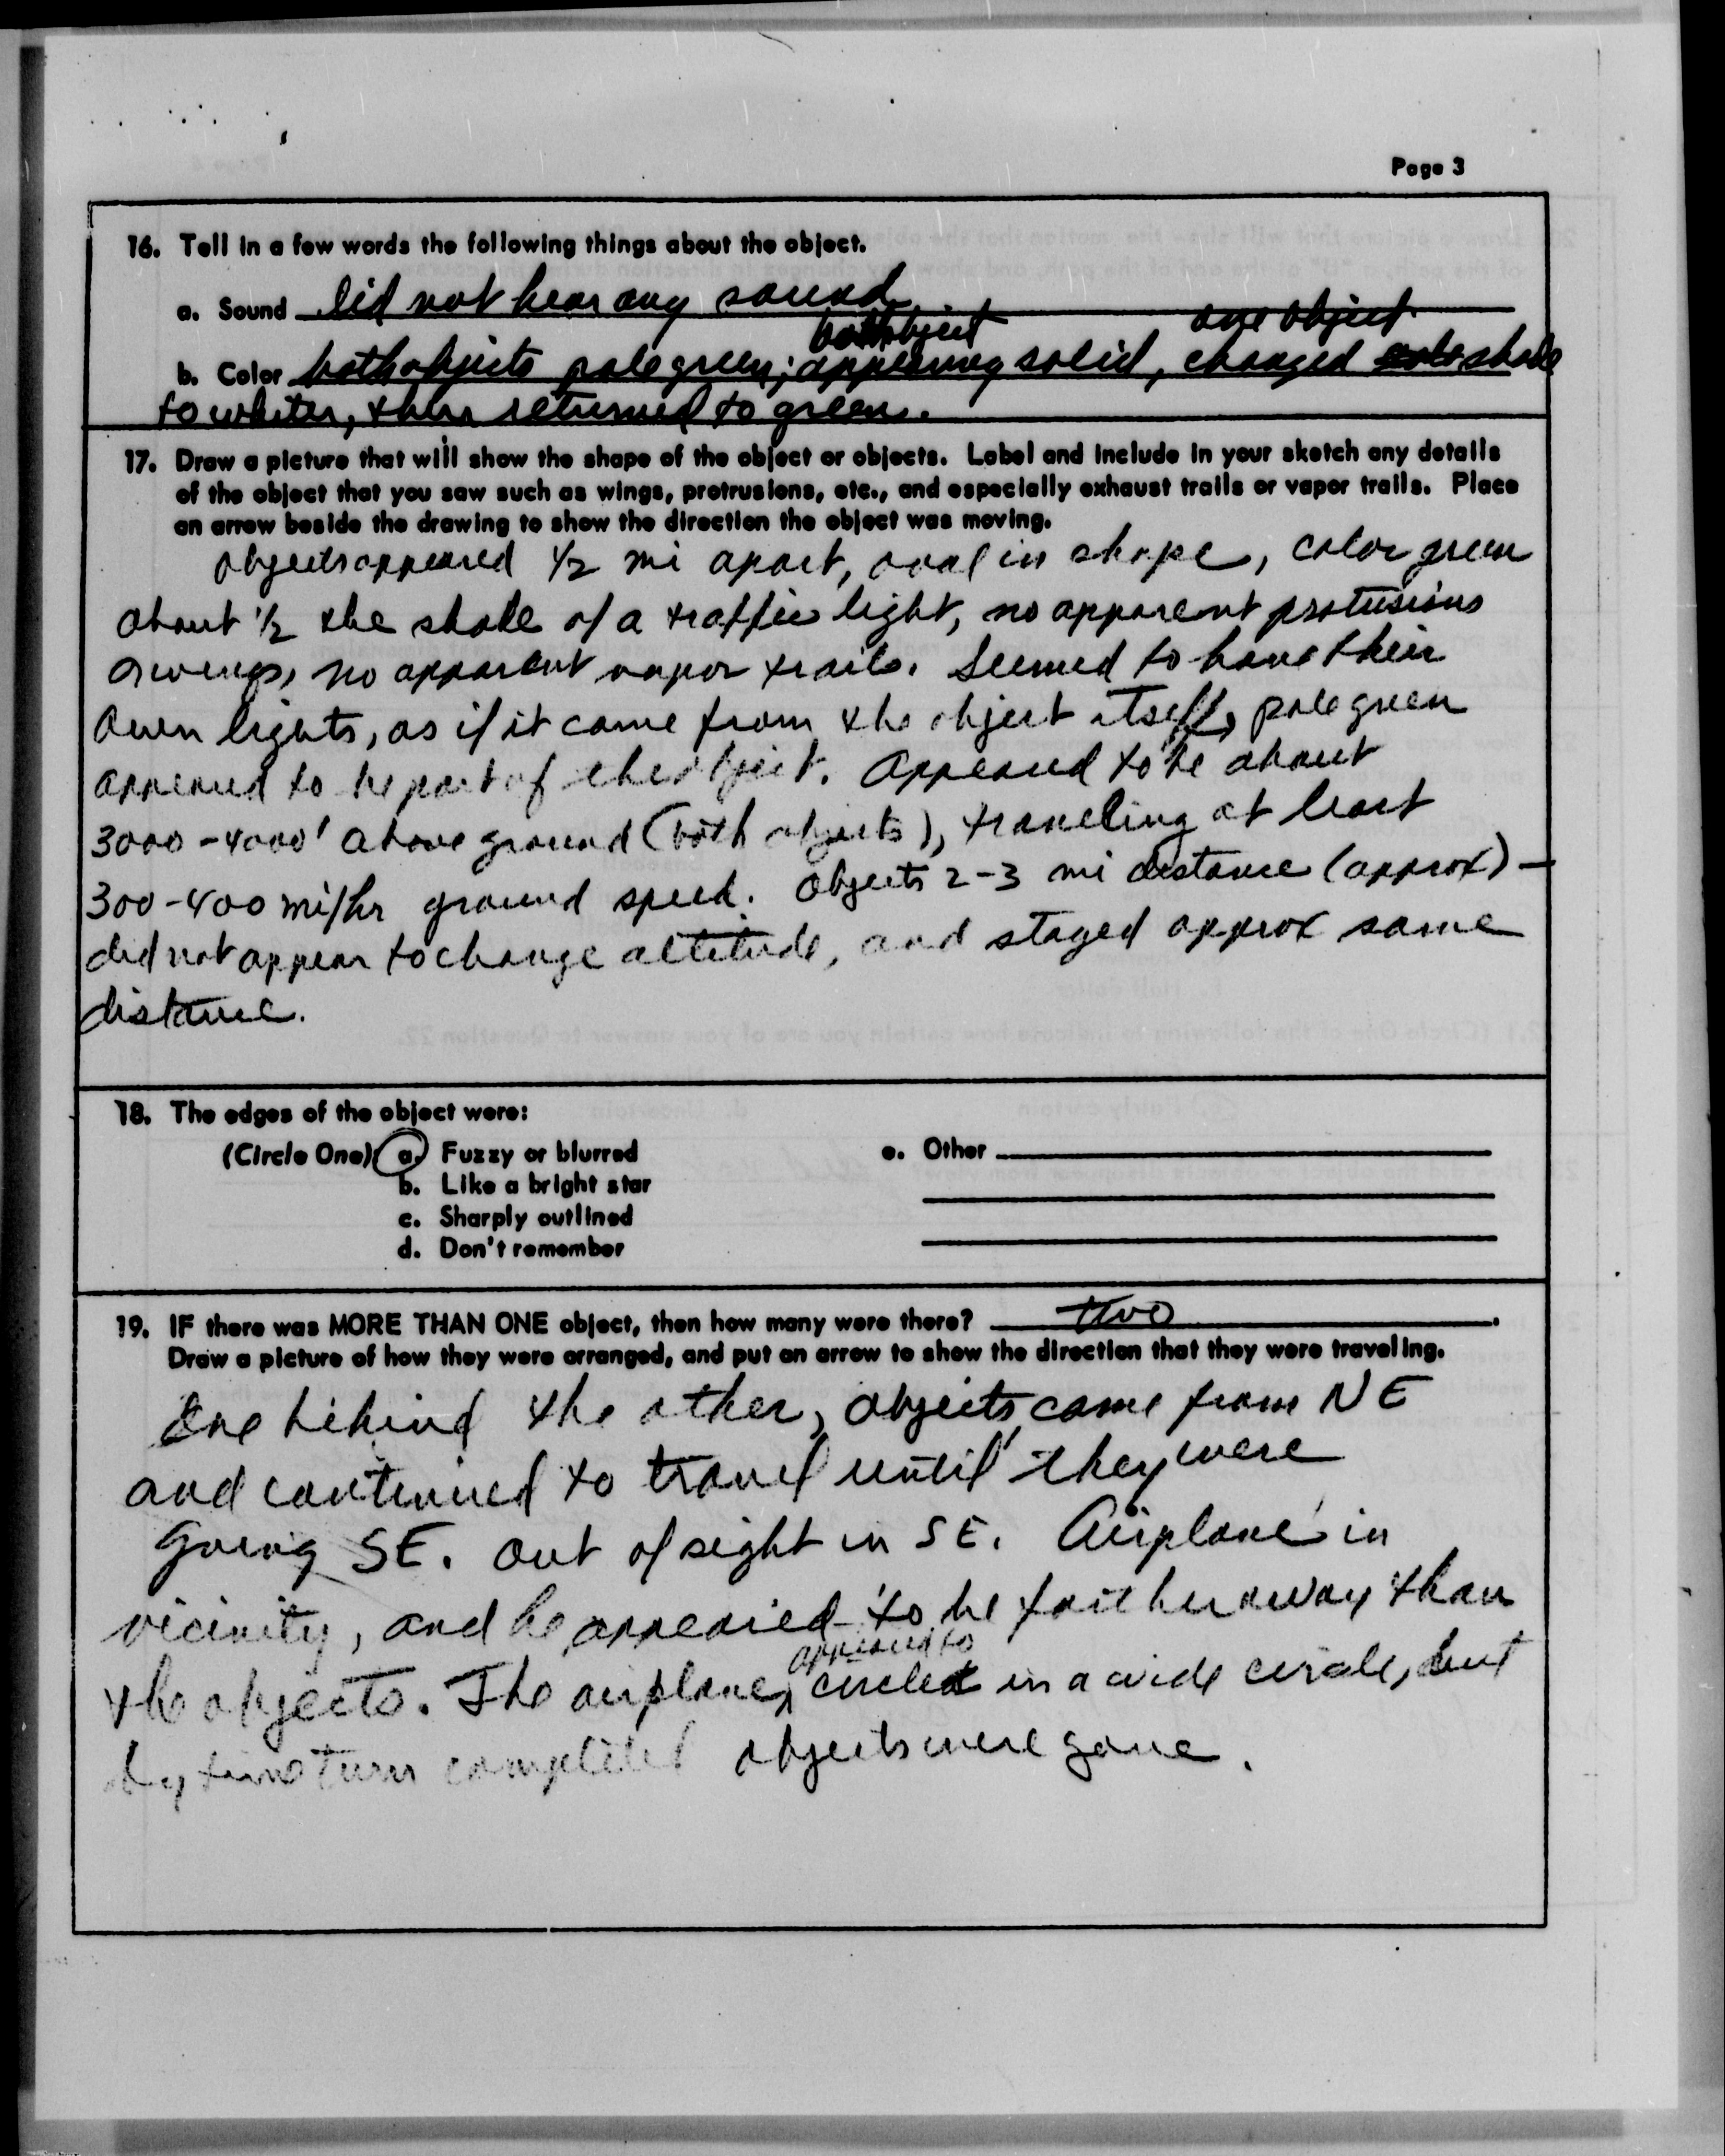 Page 3
16. Tell in a few words the following things about the object.
a. Sound Did not hear any sound.
both object one object
b. Color both objects pale green; appearing solid, changed shade
to whiter, then returned to green.
17. Draw a picture that will show the shape of the object or objects. Label and include in your sketch any details
of the object that you saw such as wings, protrusions, etc., and especially exhaust trails or vapor trails. Place
an arrow beside the drawing to show the direction the object was moving.
objects appeared 1/2 mi apart, oval in shape, color green
about 1/2 the shade of a traffic light, no apparent protusions
or wings, no apparent vapor trails. Seemed to have their
own lights, as if it came from the object itself, pale green
appeared to be part of the object. Appeared to be about
3000-4000' above ground (both objects), traveling at least
300-400 mi/hr ground speed. Objects 2-3 mi distance (approx) -
did not appear to change altitude, and stayed approx same
distance.
18. The edges of the object were:
(Circle One) a. Fuzzy or blurred e. Other
b. Like a bright star
c. Sharply outlined
d. Don't remember
19. IF there was MORE THAN ONE object, then how many were there? two.
Draw a picture of how they were arranged, and put an arrow to show the direction that they were traveling.
One behind the other, objects came from NE
and continued to travel until they were
going SE. Out of sight in SE. Airplane in
vicinity, and he appeared to be farther away than
appeared to
the objects. The airplane, circled in a wide circle, but
by time turn completed objects were gone.